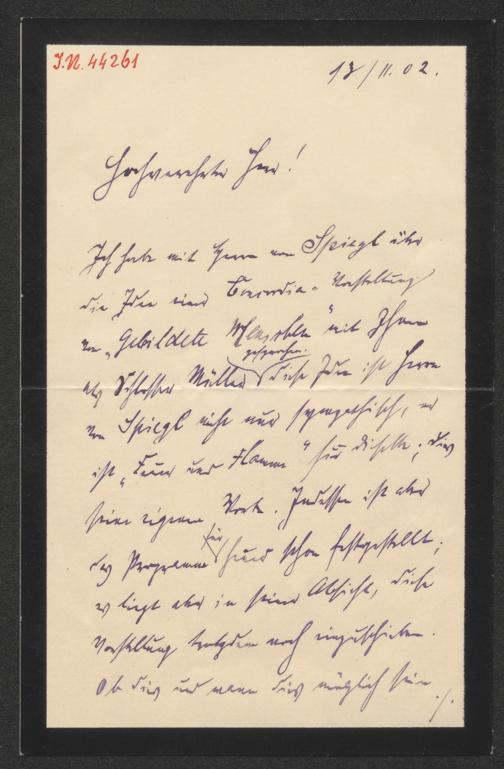 J.N. 44261
13/II. 02.
Hochverehrter Herr!
Ich habe mit Herrn von Spiegl über
die Idee einer Concordia-Vorstellung
von „Gebildete Menschen" mit Ihnen
als Schlosser Müller gesprochen. Diese Idee ist Herrn
von Spiegl nicht nur sympathisch, er
ist „Feuer und Flamme" für dieselbe; dies
seine eigenen Worte. Indessen ist aber
das Programm für heuer schon festgestellt;
es liegt aber in seiner Absicht, diese
Vorstellung trotzdem noch einzuschieben.
Ob dies und wann dies möglich sein
./.